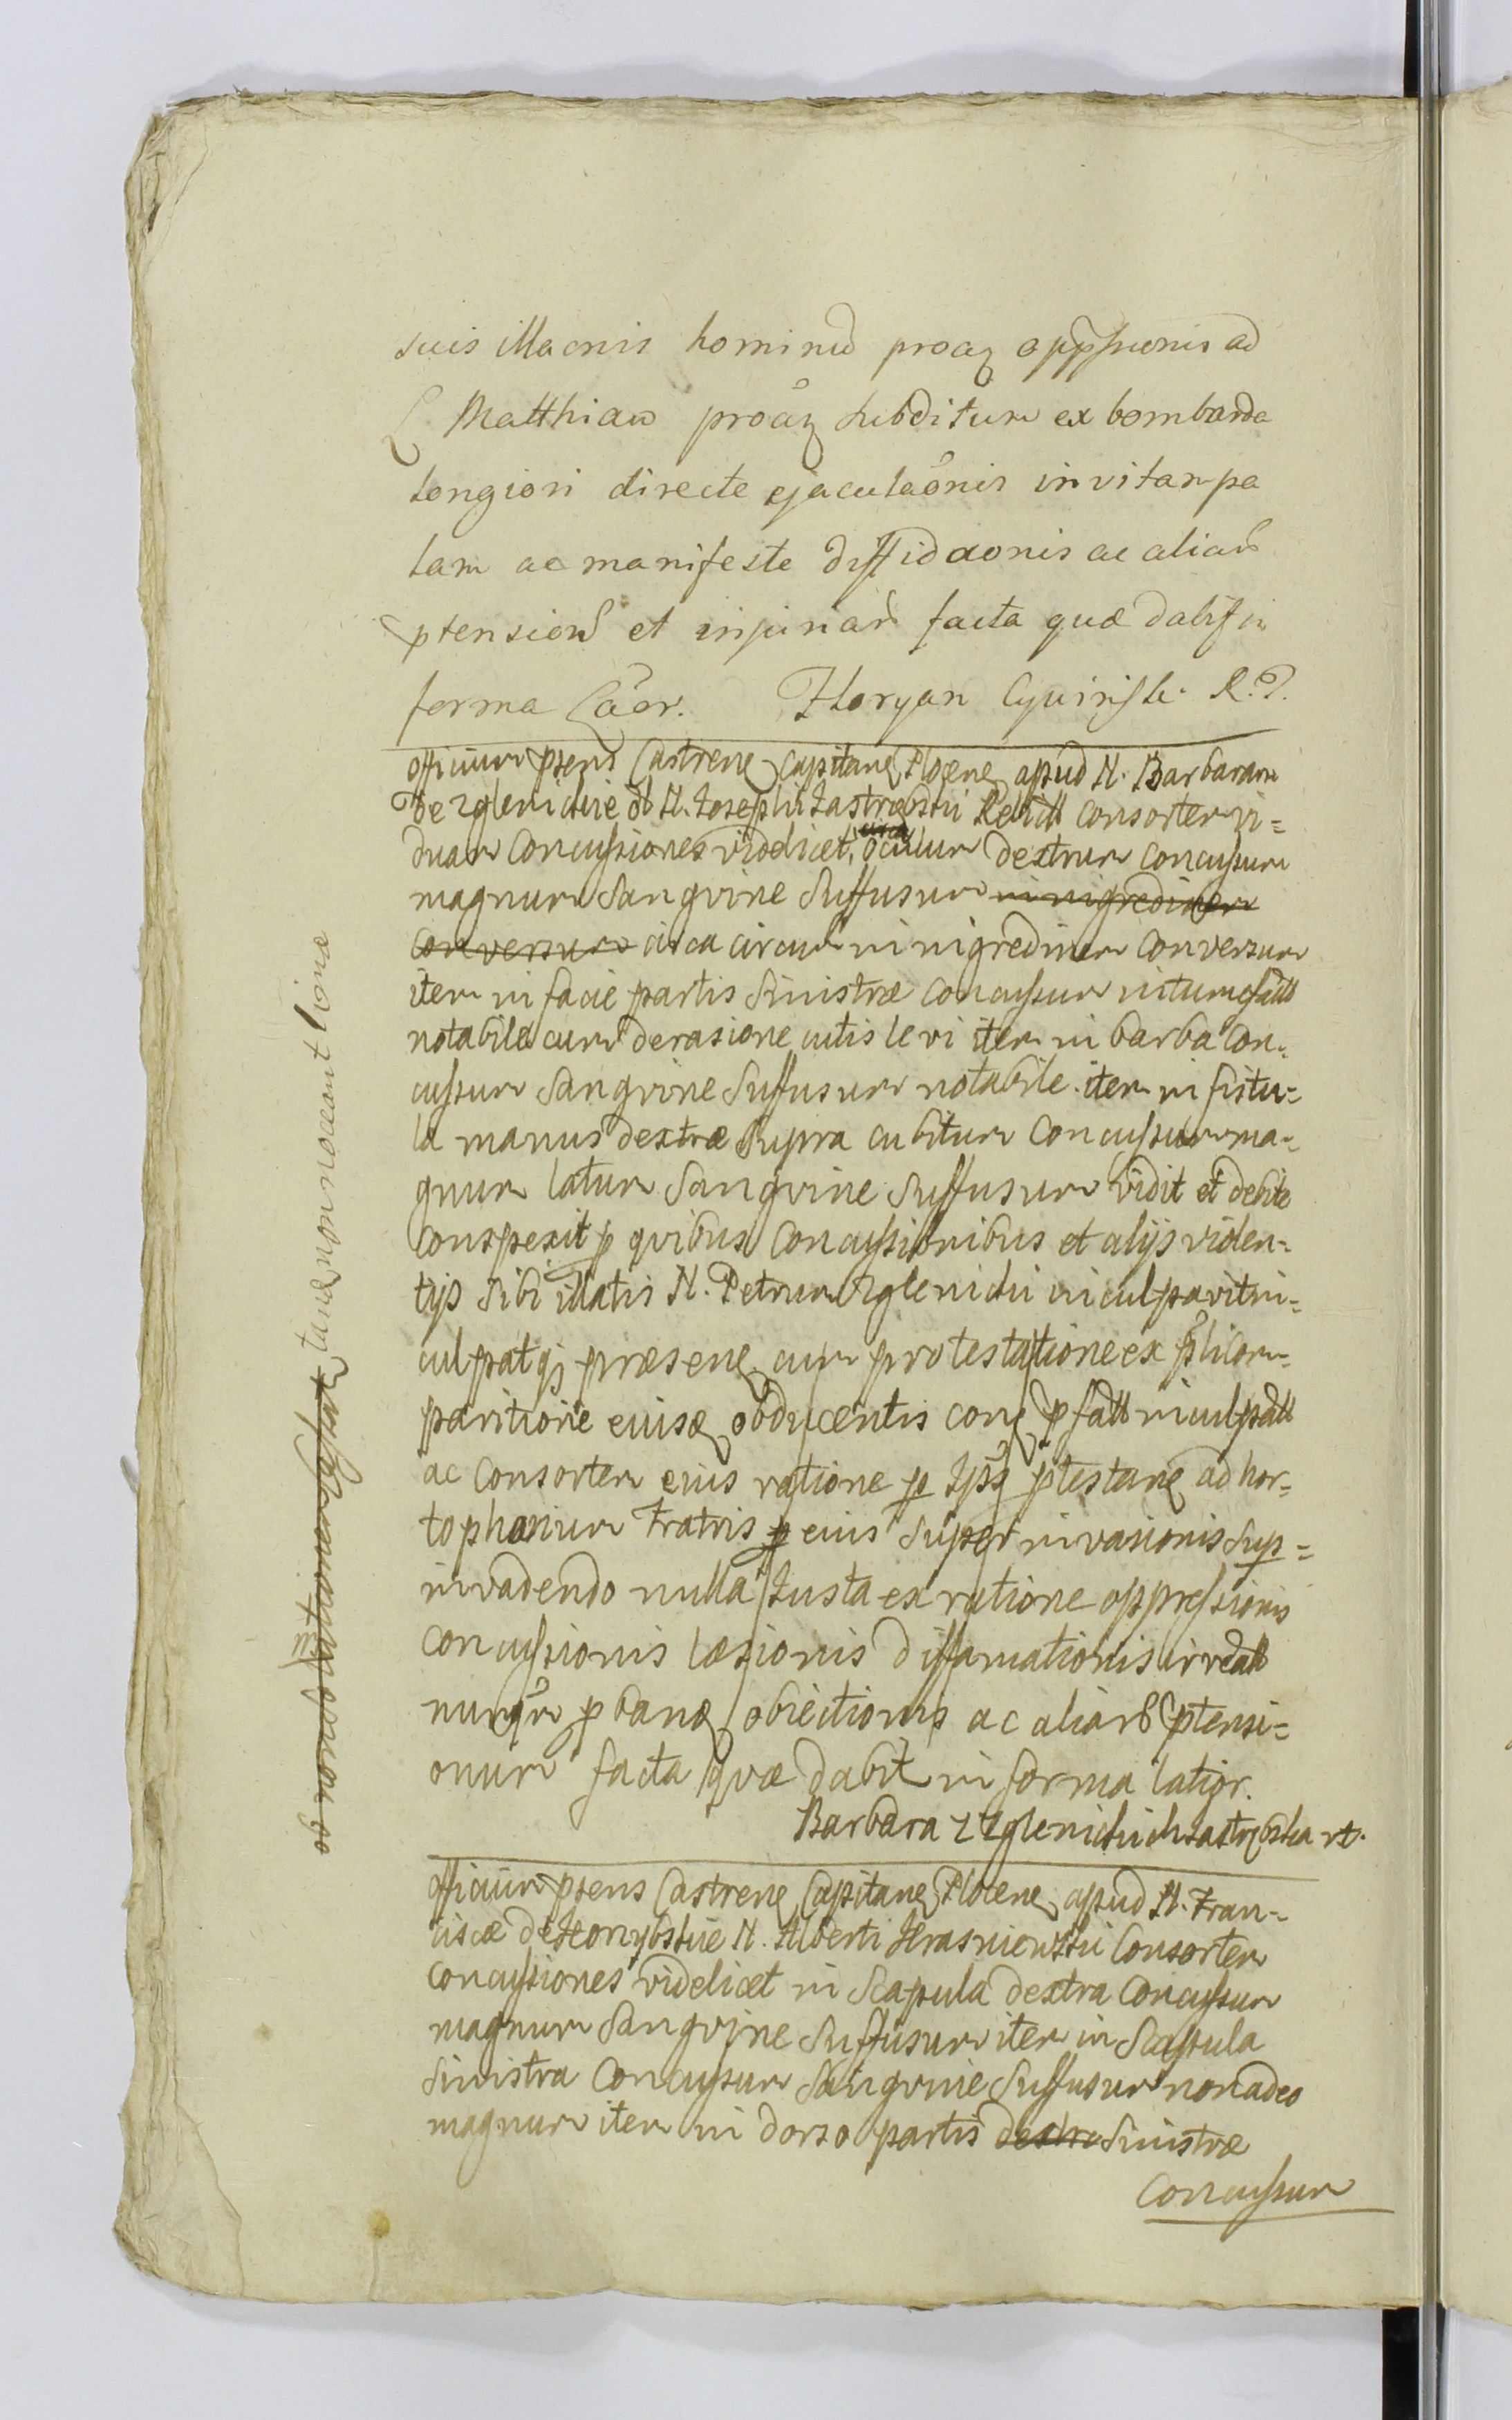 suis illaonis hominu proaz oppssionis ad
Matthiam proaz subditum ex bombarda
longiori directe ejaculaonis in vitam pa
lam ac manifeste diffidaonis ac aliar
ptension et injuriar facta quæ dabit in
forma Laor. Floryan R.P.
officium psens Castrene Capitane Plocene apud N. Barbaram
de Zglenickie ol N. Josephi Jastrzębski Relict consortem vi=
duam concussiones videlicet oculum dextrum concussum
magnum sangvine suffusum in nigredinem
conversum circa circum in nigredinem conversum
item in facie partis sinistræ concussum intumefatt
notabile cum derasione cutis levi item in barba con=
cussum sangvine suffusum notabile item in fistu=
la manus dextræ supra cubitum concussum ma=
gnum latum sangvine suffusum vidit et debite
conspexit p qvibus concussionibus et alijs violen=
tijs sibi illatis N. Petrum Zglenicki inculpavit in=
culpatqz præsene cum protestatione ex pslicom=
paritione ejusd obducentis con pfatt inculpatt
ac consortem eius ratione p Ipsz ptestane ad hor=
topharium Fratris p eius super invasionis sup=
invadendo nulla justa ex ratione oppressionis
concussionis læsionis diffamationis irreatt
nunqm pbanæ obiectionis ac aliar ptensi=
onum facta qvæ dabit in forma latior.
Barbara z Zglenickich Jastrzębska vt.
officium psens Castrene Capitane Plocene apud N. Fran=
ciscæ de N. Alberti Krasniewski Consortem
concussiones videlicet in scapula dextra concussum
magnum sangvine suffusum item in scapula
sinistra concussum sangvine suffusum non adeo
magnum item in dorso partis dextræ sinistræ
concussum